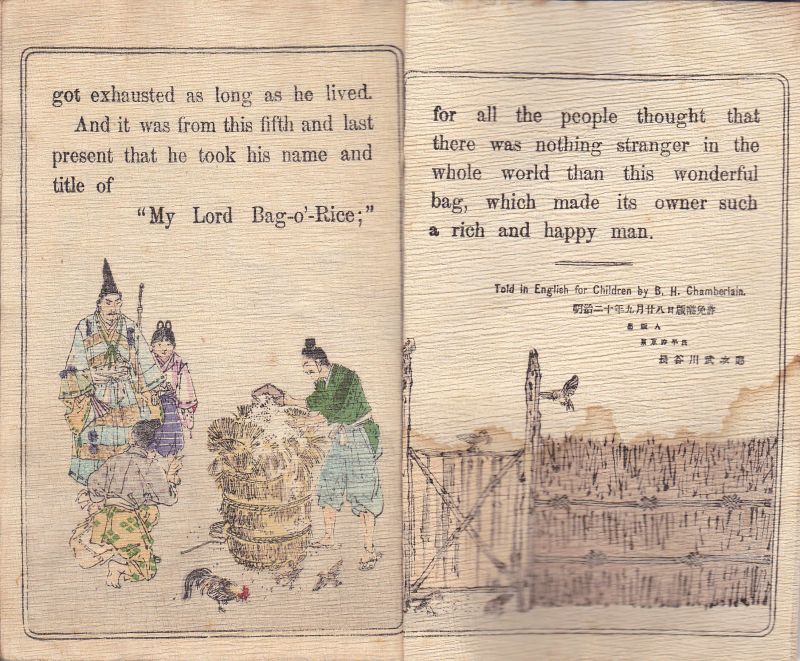 got exhausted as long as he lived.
And it was from this fifth and last
present that he took his name and
title of
"My Lord Bag-o'-Rice;"
for all the people thought that
there was nothing stranger in the
whole world than this wonderful
bag, which made its owner such
a rich and happy man.
Told in English for Children by B. H. Chamberlain.
明治二十年九月廿八日版權免許
出版人
東京府平民
長谷川武次郎